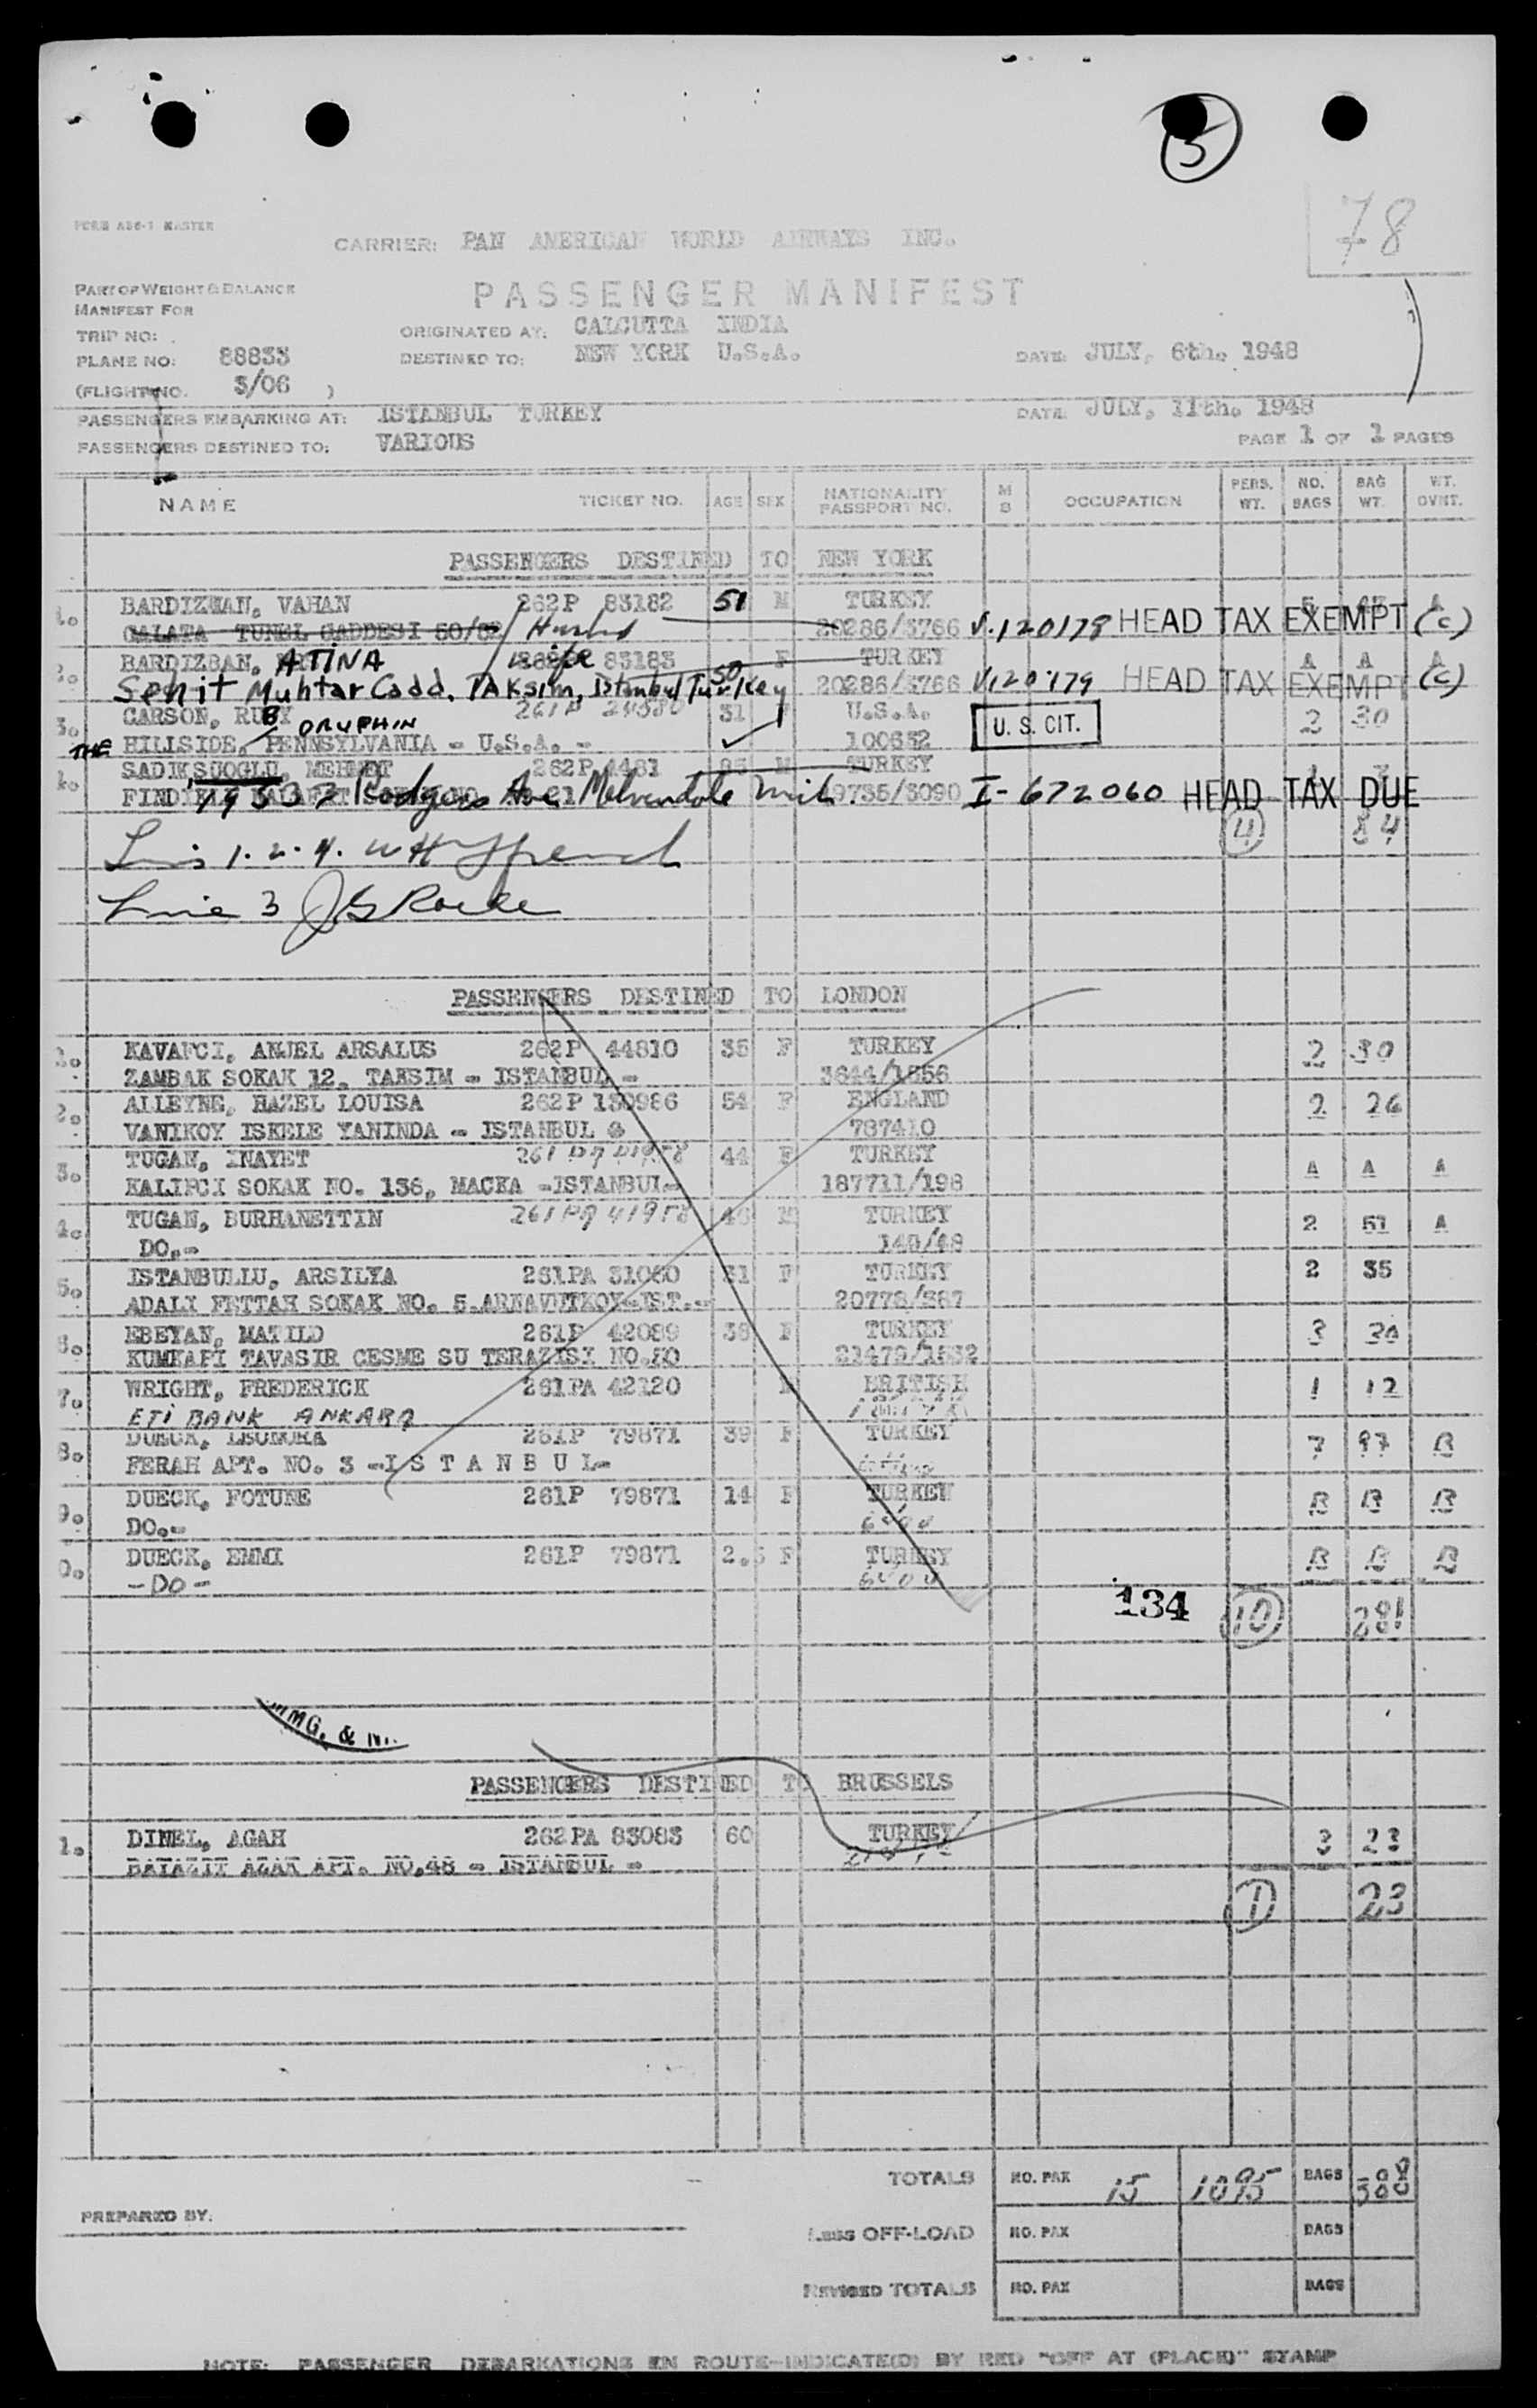 5
78
FORM ABC-1 MASTER
CARRIER: PAN AMERICAN WORLD AIRWAYS INC.
PASSENGER MANIFEST
PART OF WEIGHT & BALANCE
MANIFEST FOR
TRIP NO:
ORIGINATED AT: CALCUTTA INDIA
PLANE NO: 88833
DESTINED TO: NEW YORK U.S.A.
DATE: JULY, 6th. 1948
(FLIGHT NO. 3/06 )
PASSENGERS EMBARKING AT: ISTANBUL TURKEY
DATE: JULY, 11th. 1948
PASSENGERS DESTINED TO: VARIOUS
PAGE 1 OF 1 PAGES
NAME TICKET NO. AGE SEX NATIONALITY PASSPORT NO. M S OCCUPATION PERS. WT. NO. BAGS BAG WT. WT. OVHT.
PASSENGERS DESTINED TO NEW YORK
1. BARDIZBAN, VAHAN 262P 83182 51 M TURKEY
GALATA TUNEL CADDESI 50/52 20286/3766 V.120178 HEAD TAX EXEMPT (C)
2. BARDIZBAN, ATINA wife 83183 50 F TURKEY A A A
Sehit Muhtar Cadd. TAksim, Istanbul Turkey 20286/3766 V120179 HEAD TAX EXEMPT (C)
3. CARSON, RUBY 261P 24580 31 F U.S.A. U.S. CIT. 2 30
THE HILLSIDE, PENNSYLVANIA - U.S.A. - 100632
4. SADIKSUOGLU, MEHMET 262P 4481 M TURKEY
Melvindale Mich. I-672060 HEAD TAX DUE
4 84
1. 2. 4.
Line 3
PASSENGERS DESTINED TO LONDON
1. KAVAFCI, ANJEL ARSALUS 262P 44810 35 F TURKEY 2 30
ZAMBAK SOKAK 12, TAKSIM - ISTANBUL - 3644/1556
2. ALLEYNE, HAZEL LOUISA 262P 130986 54 F ENGLAND 2 26
VANIKOY ISKELE YANINDA - ISTANBUL 787410
3. TUGAN, INAYET 44 F TURKEY A A A
KALIPCI SOKAK NO. 136, MACKA -ISTANBUL- 187711/198
4. TUGAN, BURHANETTIN 261PA 41958 46 M TURKEY 2 51 A
DO.- 140/48
5. ISTANBULLU, ARSILYA 261PA 31060 31 F TURKEY 2 35
ADALI FETTAH SOKAK NO. 5.ARNAVUTKOY-IST.- 20778/387
6. EBEYAN, MATILD 261P 42089 38 F TURKEY 3 30
KUMKAPI TAVASIR CESME SU TERAZISI NO.20 21479/1532
7. WRIGHT, FREDERICK 261PA 42120 BRITISH 1 12
ETI BANK ANKARA
8. 261P 79871 39 F TURKEY 7 97 B
FERAH APT. NO. 3 -I S T A N B U L-
9. DUECK, FOTUNE 261P 79871 14 F TURKEY B B B
DO.-
0. DUECK, EMMI 261P 79871 2.5 F TURKEY B B B
-DO-
134 10 281
PASSENGERS DESTINED TO BRUSSELS
1. DINEL, AGAH 262PA 83083 60 TURKEY 3 23
BAYAZIT AZAK APT. NO.48 - ISTANBUL -
1 23
TOTALS NO. PAX 15 1095 BAGS
PREPARED BY:
LESS OFF-LOAD NO. PAX BAGS
REVISED TOTALS NO. PAX BAGS
NOTE: PASSENGER DEBARKATIONS EN ROUTE-INDICATE(D) BY RED "OFF AT (PLACE)" STAMP